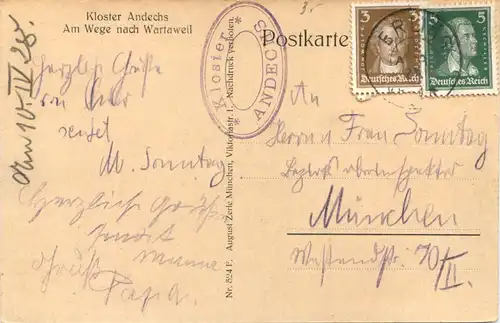 Kloster Andechs
Am Wege nach Wartaweil
Postkarte
3
5
Deutsches Reich
Deutsches Reich
Kloster
ANDECHS
Herzliche Grüße
von hier
sendet
M. Sonntag
Herzliche Grüße
sendet Mama
Gruß
Papa.
An
Herrn u Frau Sonntag
München
Westendstr. 70/II.
Nr. 824 F. August Zerle München, Viktoriastr. 1. Nachdruck verboten.